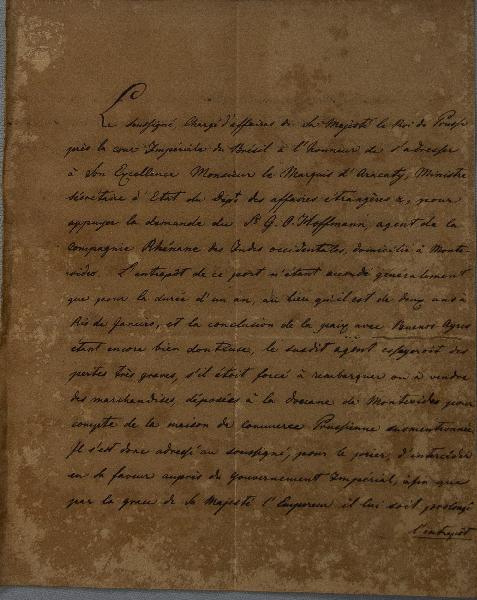 Le soussigné, Chargé d'affaires de Sa Majesté le Roi de Prusse
près la cour Impériale du Brésil a l'honneur de s'adresser
à Son Excellence Monsieur le Marquis d'Aracaty, Ministre
Sécrétaire d'Etat du Dept des affaires étrangères &, pour
appuyer la demande du Sr G. A. Hoffmann, agent de la
compagnie Rhénane des Indes occidentales, domicilié à Monte-
video. L'entrepôt de ce port n'étant accordé généralement
que pour la durée d'un an, au lieu qu'il est de deux ans à
Rio de Janeiro, et la conclusion de la paix avec Buenos Ayres
étant encore bien douteuse, le susdit agent essayeroit des
pertes très graves, s'il étoit forcé à rembarquer ou à vendre
des marchandises, déposées à la douane de Montevideo pour
compte de la maison de commerce Prussienne susmentionnée.
Il s'est donc adressé au soussigné, pour le prier, d'intercéder
en sa faveur auprès du Gouvernement Impérial, afin que
par la grace de Sa Majesté l'Empereur il lui soit prolongé
l'entrepôt